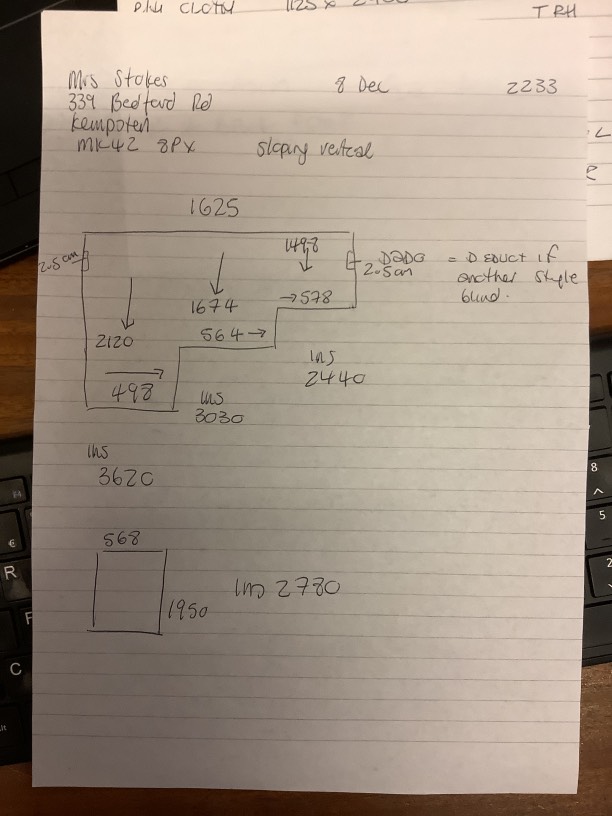 CLOTH 1125 x
TRH
Mrs Stokes 8 Dec 2233
339 Bedford Rd
Kempston
MK42 8PX Sloping vertical
1625
2.5cm 1498 DADO = Deduct if
2.5cm another style
blind.
1674 → 578
2120 564 →
498
Ins
2440
Ins
3030
Ins
3620
568
1950 Ins 2780